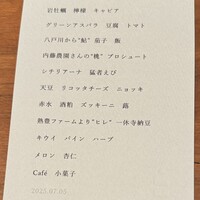 岩牡蠣　檸檬　キャビア
グリーンアスパラ　豆腐　トマト
八戸川から“鮎”　茄子　飯
内藤農園さんの“桃”　プロシュート
シチリアーナ　猛者えび
天豆　リコッタチーズ　ニョッキ
赤水　酒粕　ズッキーニ　蕗
熱豊ファームより“ヒレ”　一休寺納豆
キウイ　パイン　ハーブ
メロン　杏仁
Café　小菓子